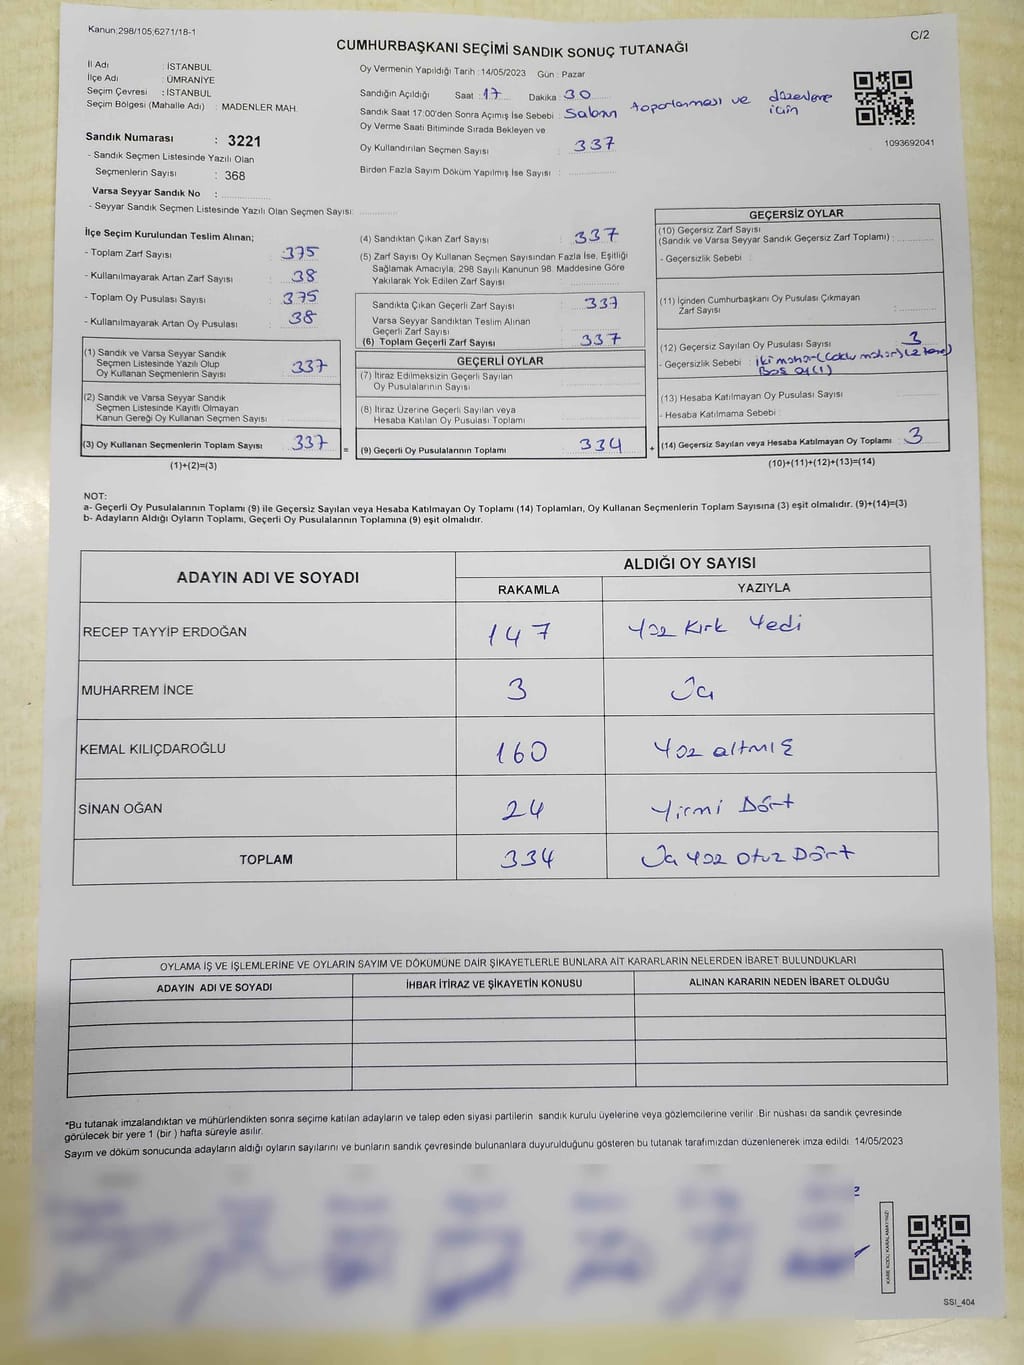 Kanun:298/105;6271/18-1
C/2
CUMHURBAŞKANI SEÇİMİ SANDIK SONUÇ TUTANAĞI
İl Adı : İSTANBUL
İlçe Adı : ÜMRANİYE
Seçim Çevresi : İSTANBUL
Seçim Bölgesi (Mahalle Adı) : MADENLER MAH.
Oy Vermenin Yapıldığı Tarih :14/05/2023 Gün : Pazar
Sandığın Açıldığı Saat :17 Dakika 30
Sandık Saat 17:00'den Sonra Açımış İse Sebebi : Salonn toparlanması ve düzenleme için
Oy Verme Saati Bitiminde Sırada Bekleyen ve
Oy Kullandırılan Seçmen Sayısı : 337
Birden Fazla Sayım Döküm Yapılmış İse Sayısı :
1093692041
Sandık Numarası : 3221
- Sandık Seçmen Listesinde Yazılı Olan
Seçmenlerin Sayısı : 368
Varsa Seyyar Sandık No :
- Seyyar Sandık Seçmen Listesinde Yazılı Olan Seçmen Sayısı:
İlçe Seçim Kurulundan Teslim Alınan;
- Toplam Zarf Sayısı : 375
- Kullanılmayarak Artan Zarf Sayısı : 38
- Toplam Oy Pusulası Sayısı : 375
- Kullanılmayarak Artan Oy Pusulası : 38
(1) Sandık ve Varsa Seyyar Sandık
Seçmen Listesinde Yazılı Olup
Oy Kullanan Seçmenlerin Sayısı : 337
(2) Sandık ve Varsa Seyyar Sandık
Seçmen Listesinde Kayıtlı Olmayan
Kanun Gereği Oy Kullanan Seçmen Sayısı :
(3) Oy Kullanan Seçmenlerin Toplam Sayısı : 337
(1)+(2)=(3)
=
(4) Sandıktan Çıkan Zarf Sayısı : 337
(5) Zarf Sayısı Oy Kullanan Seçmen Sayısından Fazla İse, Eşitliği
Sağlamak Amacıyla, 298 Sayılı Kanunun 98. Maddesine Göre
Yakılarak Yok Edilen Zarf Sayısı :
Sandıkta Çıkan Geçerli Zarf Sayısı : 337
Varsa Seyyar Sandıktan Teslim Alınan
Geçerli Zarf Sayısı :
(6) Toplam Geçerli Zarf Sayısı : 337
GEÇERLİ OYLAR
(7) İtiraz Edilmeksizin Geçerli Sayılan
Oy Pusulalarının Sayısı :
(8) İtiraz Üzerine Geçerli Sayılan veya
Hesaba Katılan Oy Pusulası Toplamı :
(9) Geçerli Oy Pusulalarının Toplamı : 334
+
GEÇERSİZ OYLAR
(10) Geçersiz Zarf Sayısı
(Sandık ve Varsa Seyyar Sandık Geçersiz Zarf Toplamı) :
- Geçersizlik Sebebi :
(11) İçinden Cumhurbaşkanı Oy Pusulası Çıkmayan
Zarf Sayısı :
(12) Geçersiz Sayılan Oy Pusulası Sayısı : 3
- Geçersizlik Sebebi : iki mühür (Çoklu mühür) (2 tane)
Boş oy (1)
(13) Hesaba Katılmayan Oy Pusulası Sayısı :
- Hesaba Katılmama Sebebi :
(14) Geçersiz Sayılan veya Hesaba Katılmayan Oy Toplamı : 3
(10)+(11)+(12)+(13)=(14)
NOT:
a- Geçerli Oy Pusulalarının Toplamı (9) ile Geçersiz Sayılan veya Hesaba Katılmayan Oy Toplamı (14) Toplamları, Oy Kullanan Seçmenlerin Toplam Sayısına (3) eşit olmalıdır. (9)+(14)=(3)
b- Adayların Aldığı Oyların Toplamı, Geçerli Oy Pusulalarının Toplamına (9) eşit olmalıdır.
ADAYIN ADI VE SOYADI
ALDIĞI OY SAYISI
RAKAMLA YAZIYLA
RECEP TAYYİP ERDOĞAN 147 Yüz Kırk Yedi
MUHARREM İNCE 3 Üç
KEMAL KILIÇDAROĞLU 160 Yüz altmış
SİNAN OĞAN 24 Yirmi Dört
TOPLAM 334 Üç Yüz Otuz Dört
OYLAMA İŞ VE İŞLEMLERİNE VE OYLARIN SAYIM VE DÖKÜMÜNE DAİR ŞİKAYETLERLE BUNLARA AİT KARARLARIN NELERDEN İBARET BULUNDUKLARI
ADAYIN ADI VE SOYADI İHBAR İTİRAZ VE ŞİKAYETİN KONUSU ALINAN KARARIN NEDEN İBARET OLDUĞU
*Bu tutanak imzalandıktan ve mühürlendikten sonra seçime katılan adayların ve talep eden siyasi partilerin sandık kurulu üyelerine veya gözlemcilerine verilir. Bir nüshası da sandık çevresinde
görülecek bir yere 1 (bir ) hafta süreyle asılır.
Sayım ve döküm sonucunda adayların aldığı oyların sayılarını ve bunların sandık çevresinde bulunanlara duyurulduğunu gösteren bu tutanak tarafımızdan düzenlenerek imza edildi. 14/05/2023
KARE KODU KARALAMAYINIZ!
SSI_404